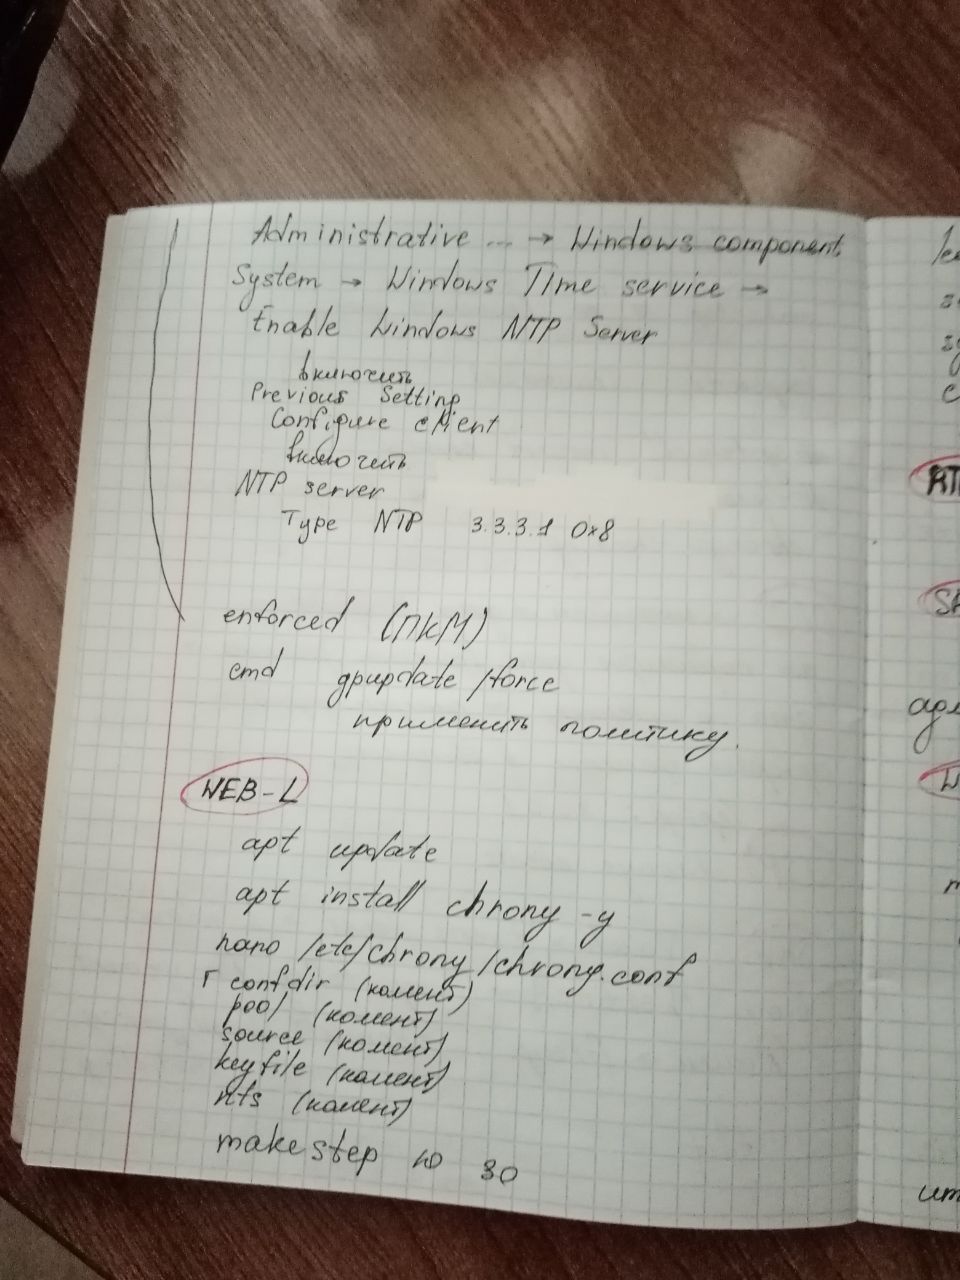 Administrative ... → Windows component
System → Windows Time service →
Enable Windows NTP Server
включить
Previous Setting
Configure client
включить
NTP server
Type NTP 3.3.3.1 0x8
enforced (ПКМ)
cmd gpupdate /force
применить политику.
WEB-L
apt update
apt install chrony -y
nano /etc/chrony/chrony.conf
confdir (комент)
pool (комент)
source (комент)
keyfile (комент)
nts (комент)
makestep 10 30